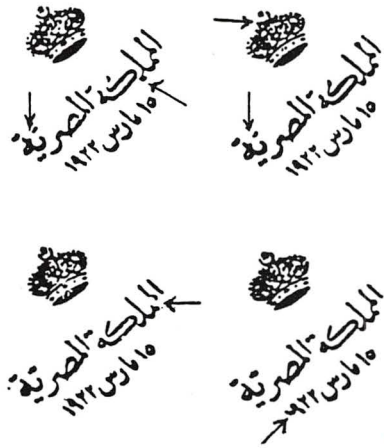 المملكة المصرية
١٥ مارس ١٩٢٢
المملكة المصرية
١٥ مارس ١٩٢٢
المملكة المصرية
١٥ مارس ١٩٢٢
المملكة المصرية
١٥ مارس ٩٢٢